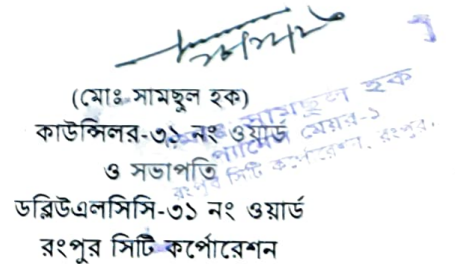 (মোঃ সামছুল হক)
কাউন্সিলর-৩১ নং ওয়ার্ড
ও সভাপতি
ডব্লিউএলসিসি-৩১ নং ওয়ার্ড
রংপুর সিটি কর্পোরেশন
মোঃ সামছুল হক
প্যানেল মেয়র-১
রংপুর সিটি কর্পোরেশন, রংপুর।